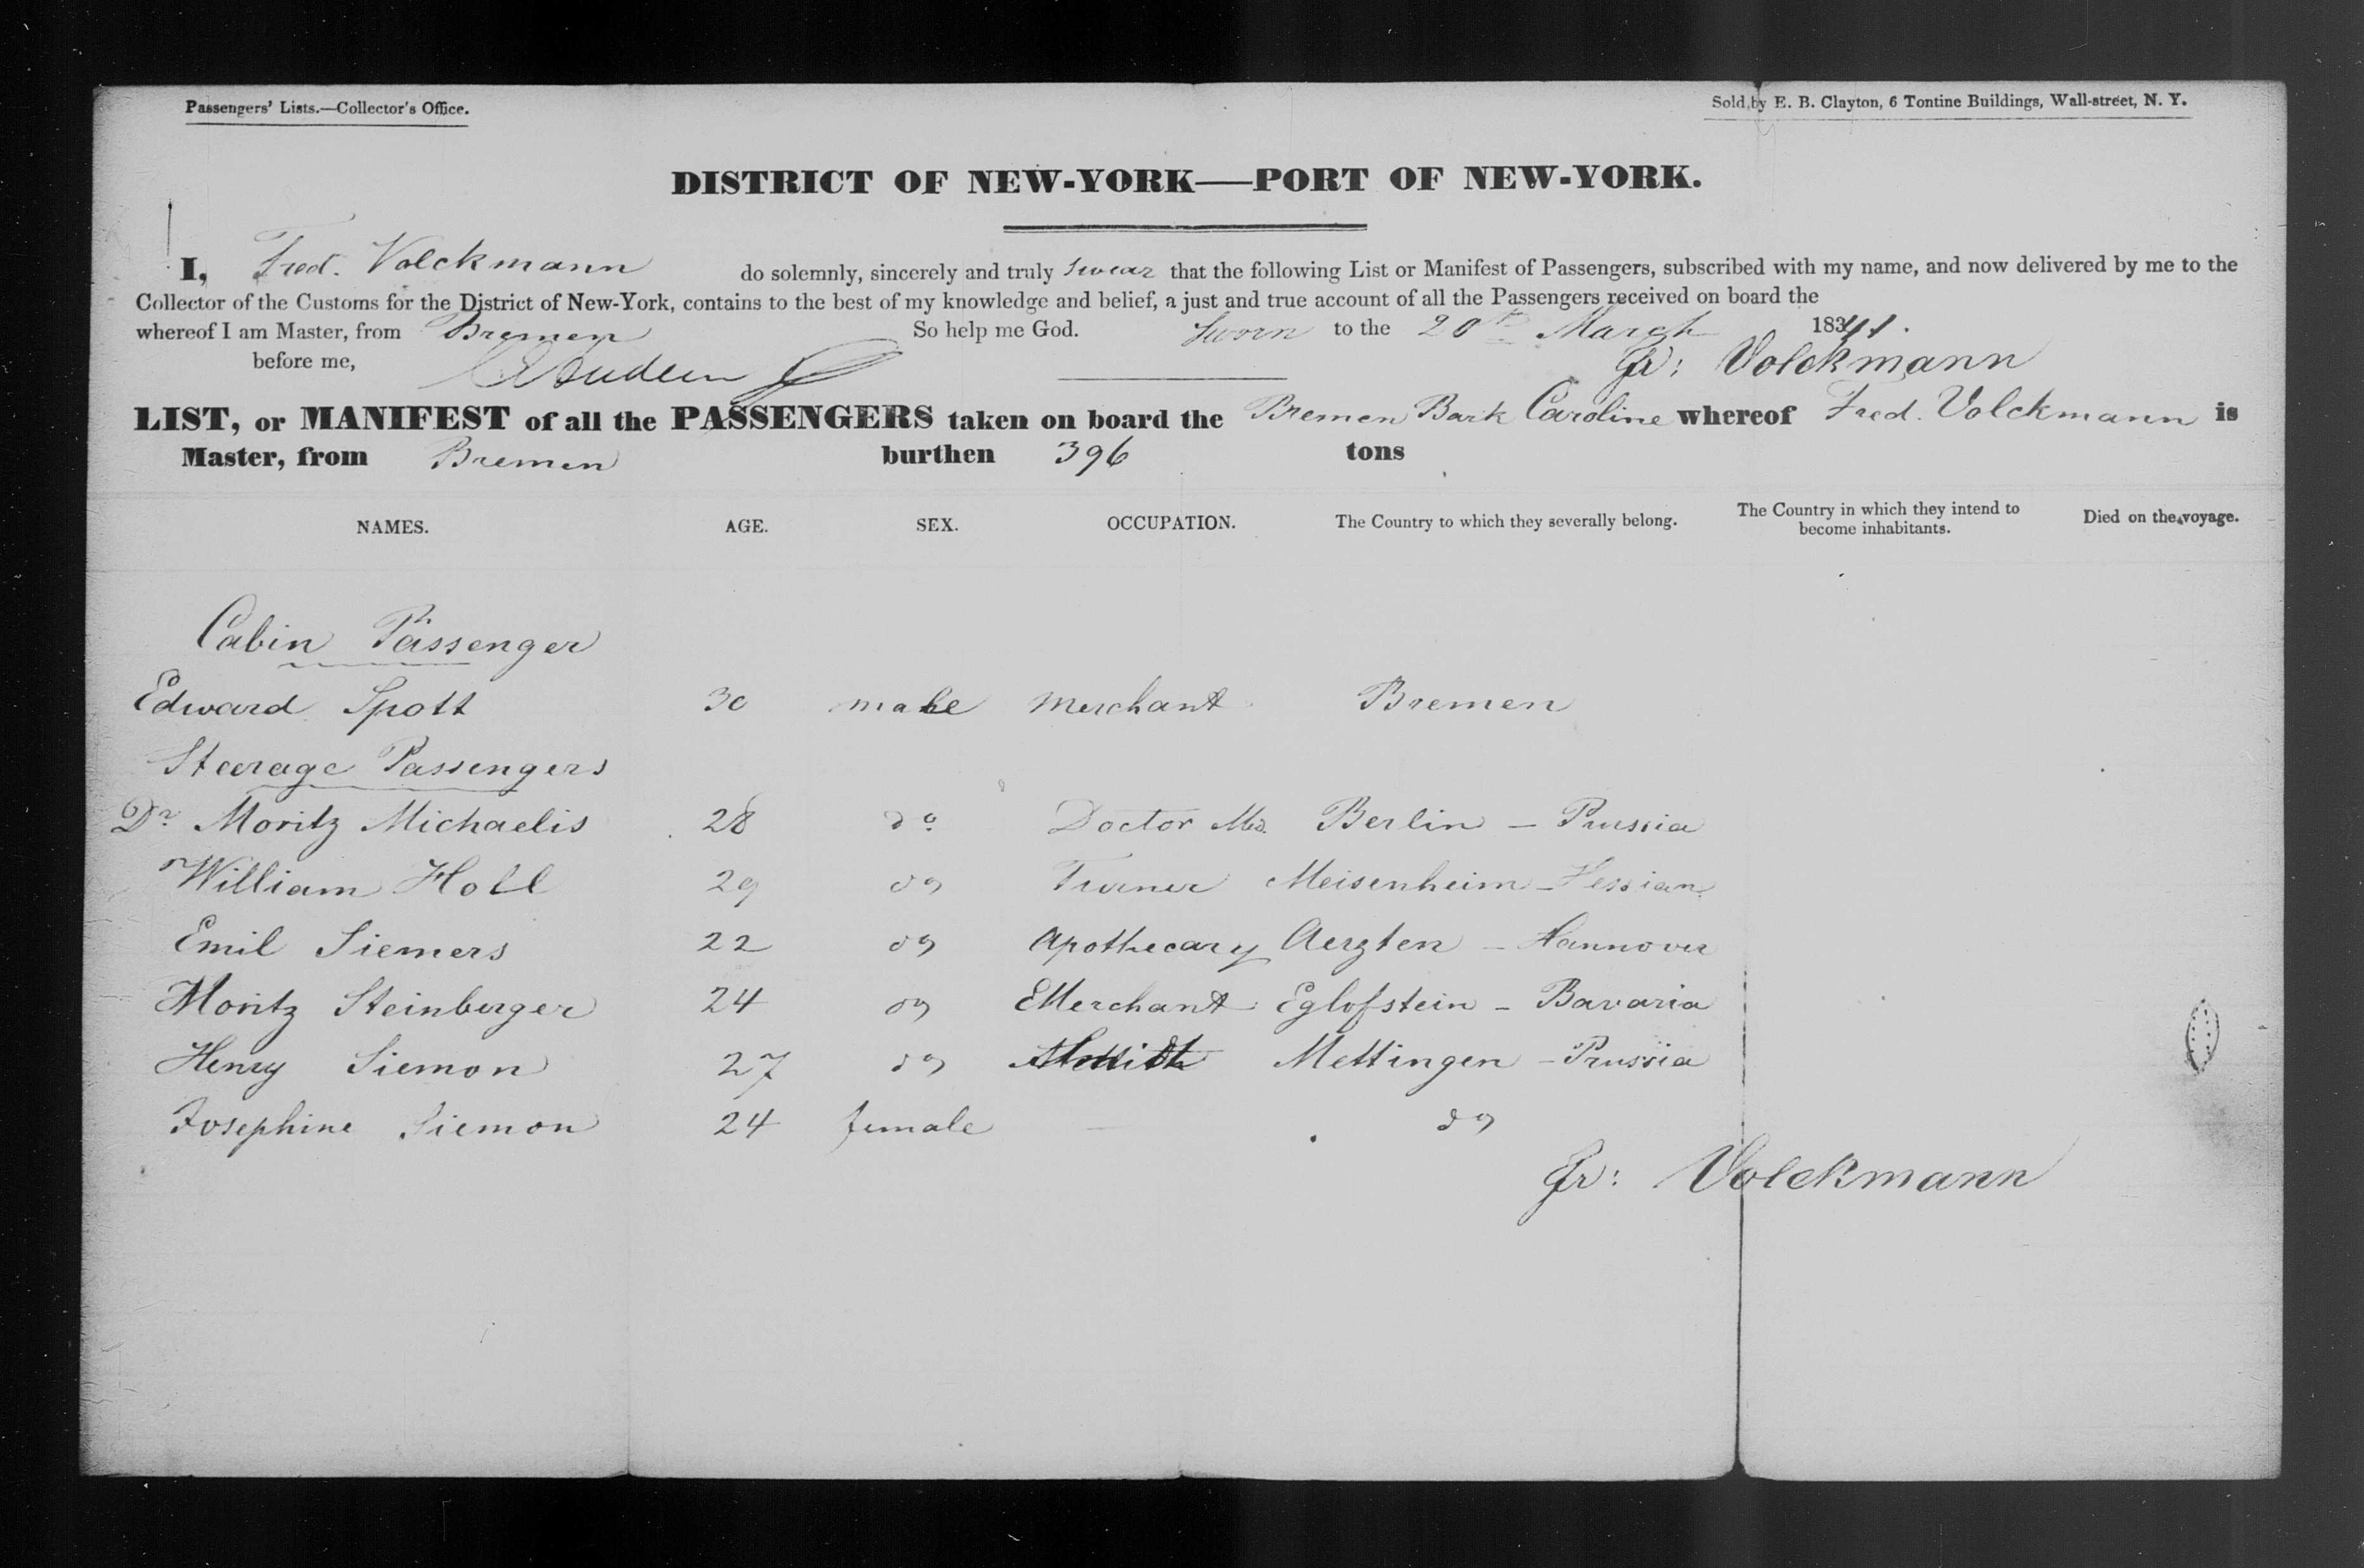 Passengers' Lists.—Collector's Office.
Sold by E. B. Clayton, 6 Tontine Buildings, Wall-street, N. Y.
DISTRICT OF NEW-YORK—PORT OF NEW-YORK.
I, Fred. Volckmann do solemnly, sincerely and truly swear that the following List or Manifest of Passengers, subscribed with my name, and now delivered by me to the
Collector of the Customs for the District of New-York, contains to the best of my knowledge and belief, a just and true account of all the Passengers received on board the
whereof I am Master, from Bremen So help me God. Sworn to the 20th March 1841.
before me, Fr: Volckmann
LIST, or MANIFEST of all the PASSENGERS taken on board the Bremen Bark Caroline whereof Fred. Volckmann is
Master, from Bremen burthen 396 tons
NAMES. AGE. SEX. OCCUPATION. The Country to which they severally belong. The Country in which they intend to become inhabitants. Died on the voyage.
Cabin Passenger
Edward Spott 30 male Merchant Bremen
Steerage Passengers
Dr Moritz Michaelis 28 do Doctor Med. Berlin — Prussia
William Holl 29 do Turner Meisenheim — Hessian
Emil Siemers 22 do Apothecary Aerzten — Hannover
Moritz Steinberger 24 do Merchant Eglofstein — Bavaria
Henry Siemon 27 do Mettingen — Prussia
Josephine Siemon 24 female — do
Fr: Volckmann